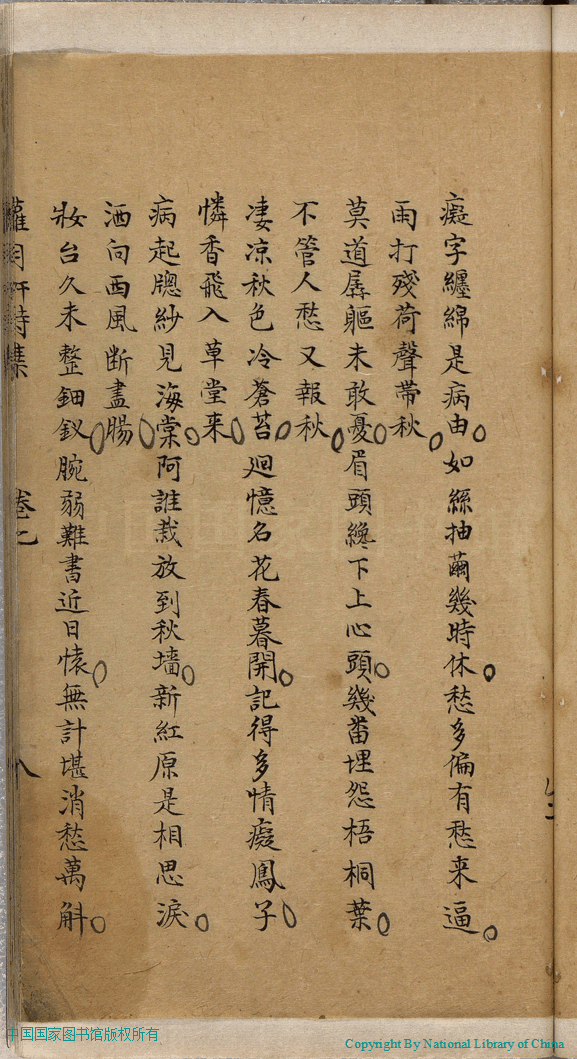 癡字纏綿是病由如絲抽繭幾時休愁多偏有愁来逼
雨打殘荷聲帶秋
莫道孱軀未敢憂眉頭纔下上心頭幾畨埋怨梧桐葉
不管人愁又報秋
凄凉秋色冷蒼苔廻憶名花春暮開記得多情癡鳳子
憐香飛入草堂来
病起牕紗見海棠阿誰栽放到秋墻新紅原是相思淚
洒向西風断盡腸
妝台久未整鈿釵腕弱難書近日懷無計堪消愁萬斛
卷七 八
中国国家图书馆版权所有
Copyright By National Library of China